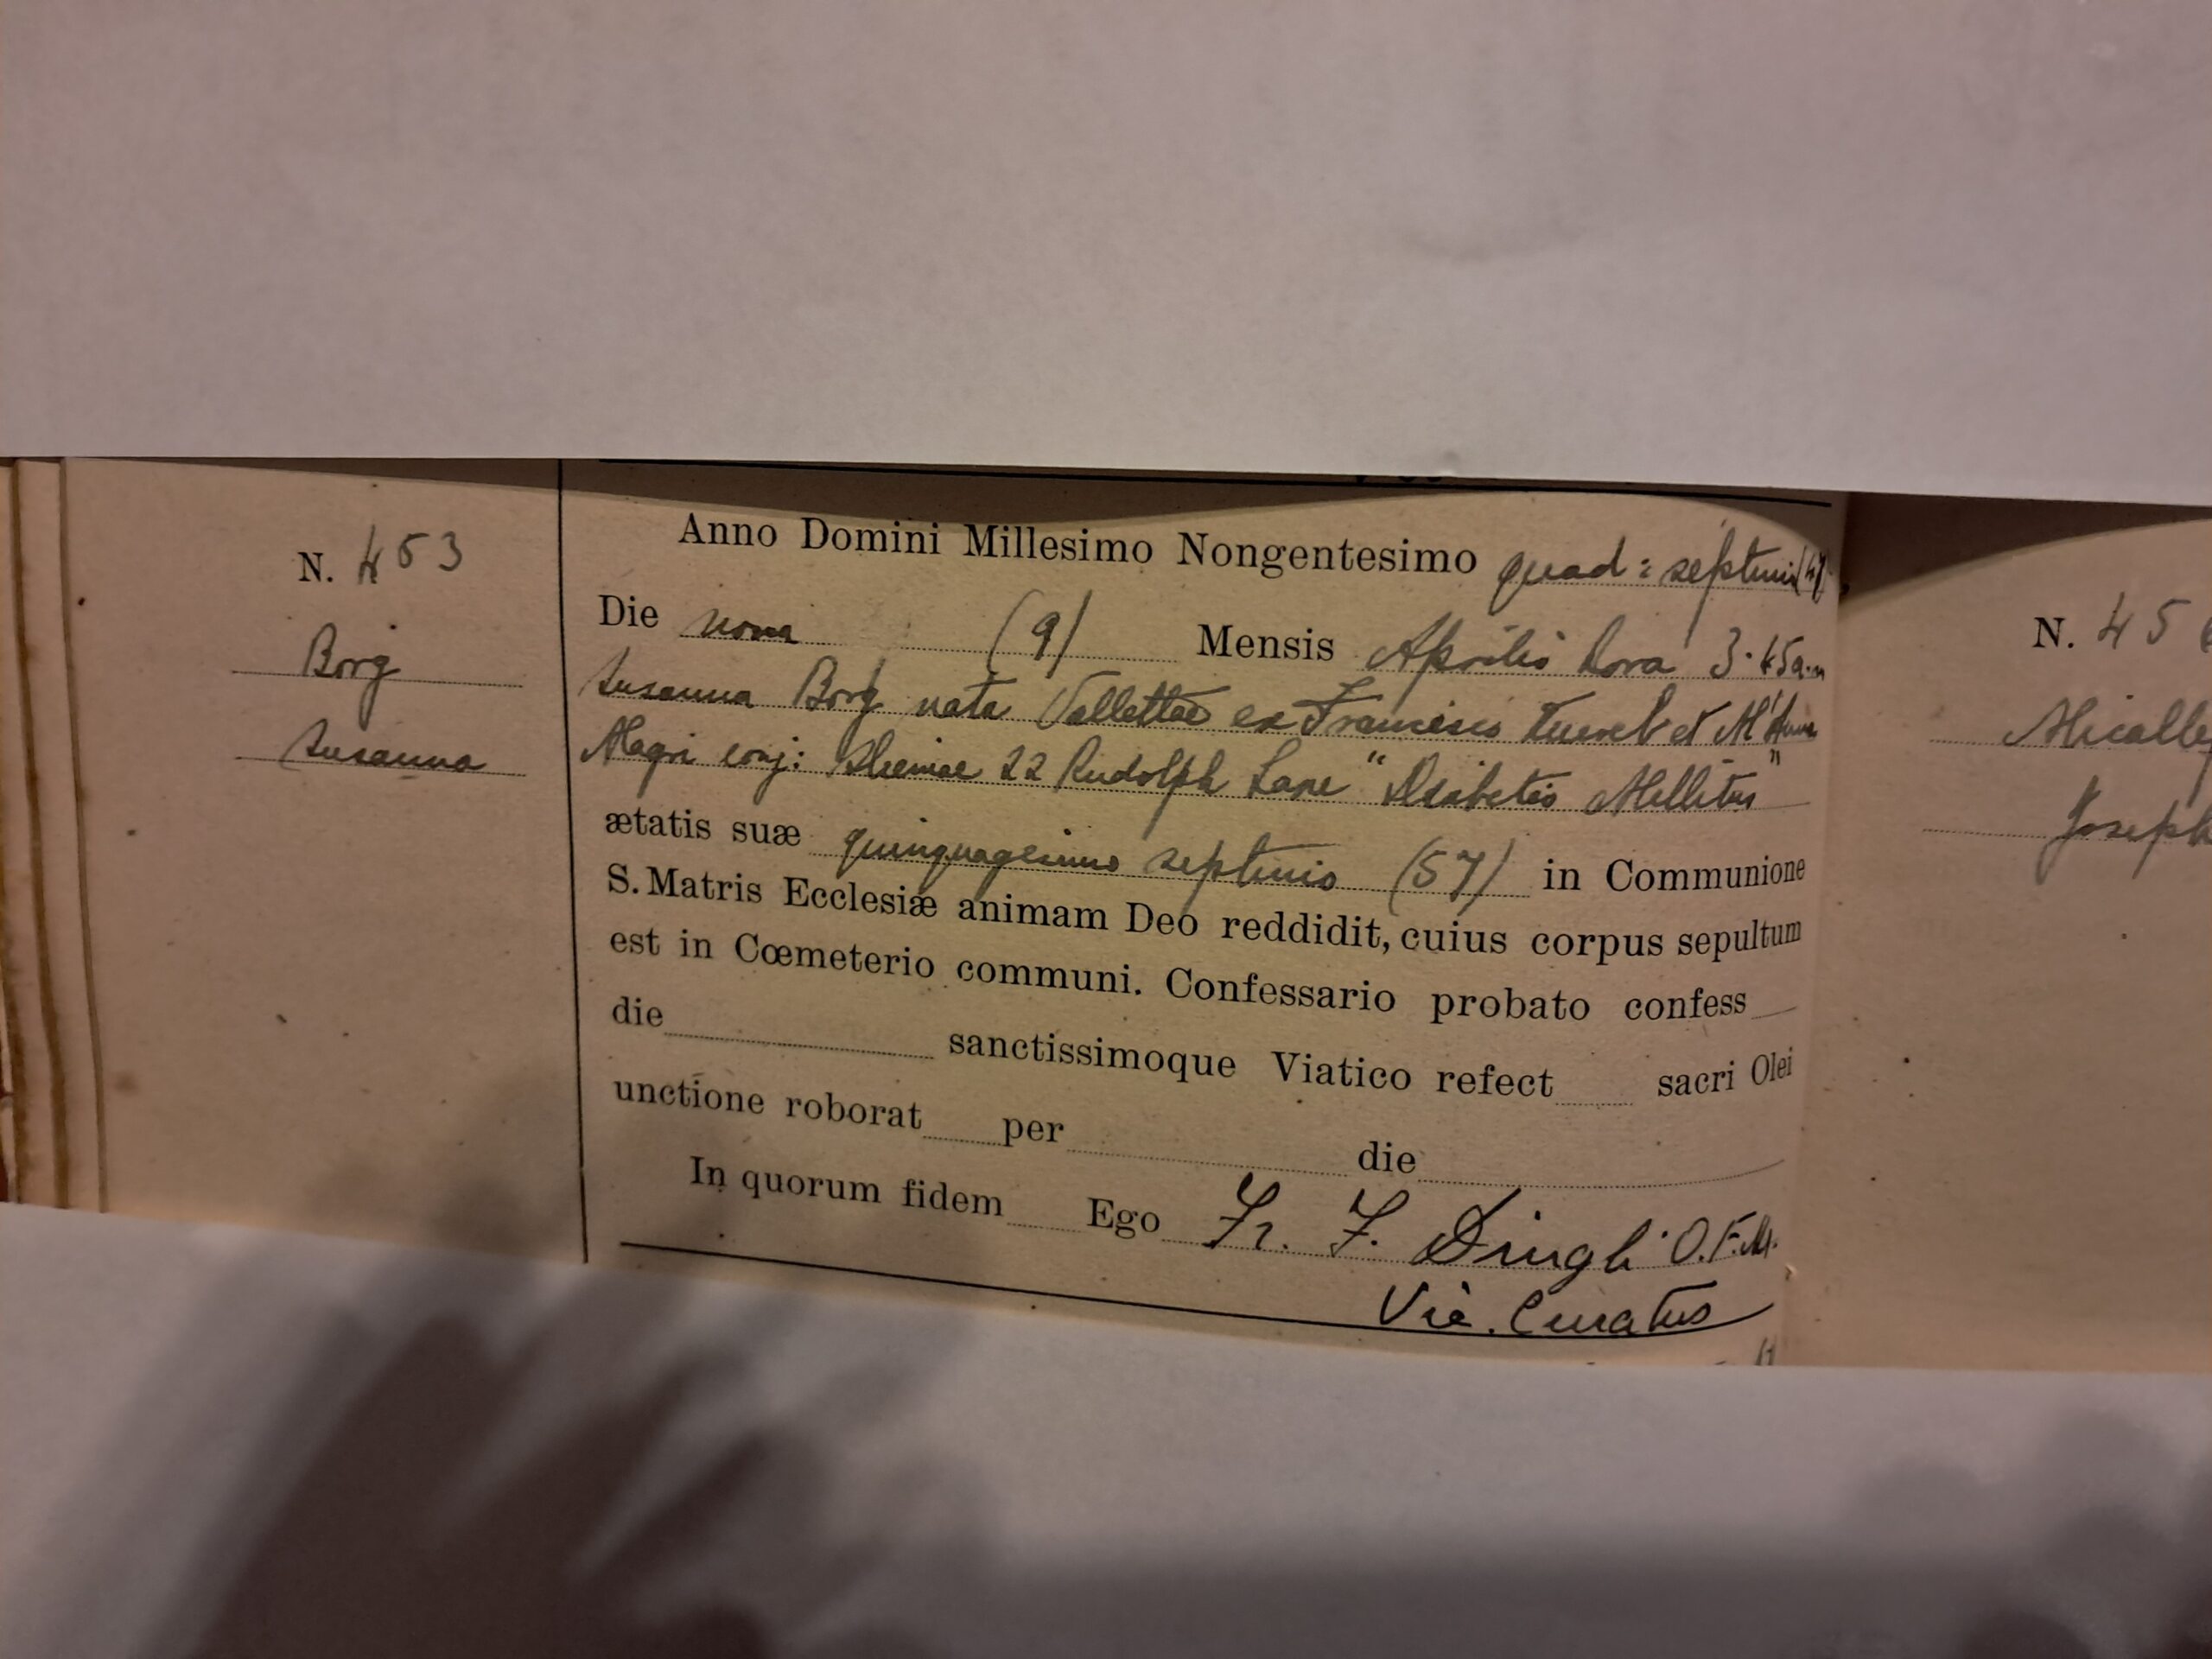 N. 453
Borg
Susanna
Anno Domini Millesimo Nongentesimo quad: septimo (47)
Die nona (9) Mensis Aprilis hora 3.45 a.m
Susanna Borg nata Vallettae ex Francisco et M'Anna
Magri conj: Sliemae 22 Rudolph Lane "Diabetes Mellitus"
ætatis suæ quinquagesimo septimo (57) in Communione
S. Matris Ecclesiæ animam Deo reddidit, cuius corpus sepultum
est in Cœmeterio communi. Confessario probato confess
die sanctissimoque Viatico refect sacri Olei
unctione roborat per die
In quorum fidem Ego Fr. F. Dingli O.F.M.
Vic. Curatus
N. 45
Micallef
Joseph